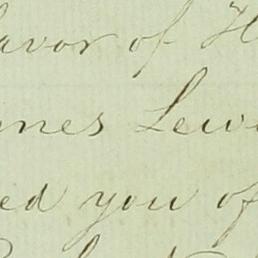 avor of H
mes Lewi
ed you of